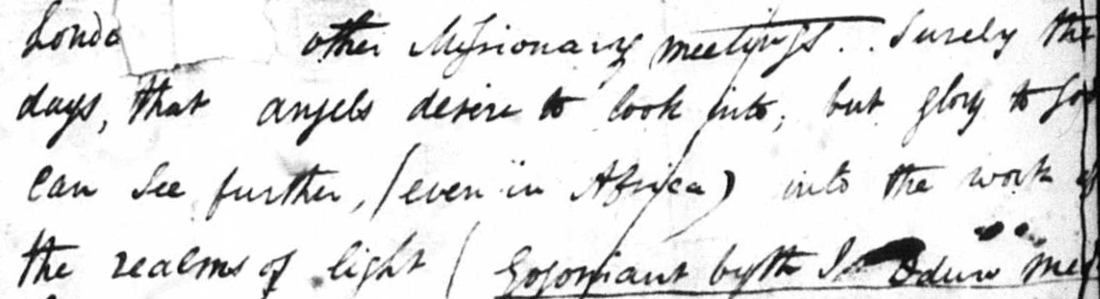 Londo other Missionary meetings.. Surely the
days, that angels desire to look into, but glory to God
can see further, (even in Africa) into the work of
the realms of light ( Gogoniant byth I Dduw